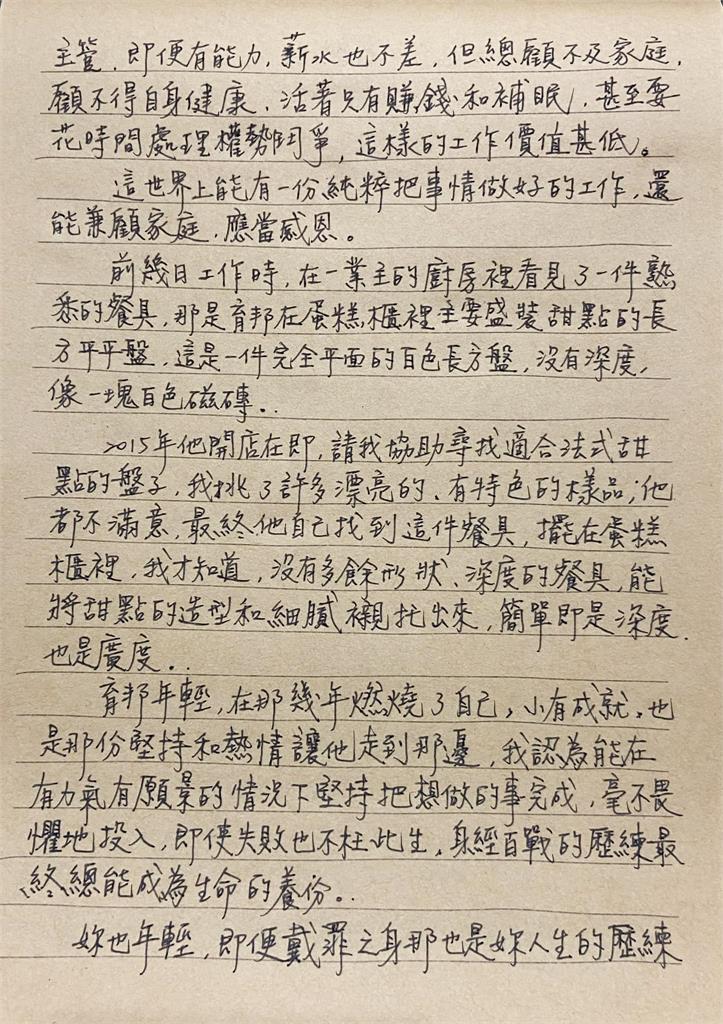 主管，即便有能力，薪水也不差，但總顧不及家庭，
顧不得自身健康、活著只有賺錢和補眠，甚至要
花時間處理權勢鬥爭，這樣的工作價值甚低。
這世界上能有一份純粹把事情做好的工作，還
能兼顧家庭，應當感恩。
前幾日工作時，在一業主的廚房裡看見了一件熟
悉的餐具，那是育邦在蛋糕櫃裡主要盛裝甜點的長
方平平盤，這是一件完全平面的白色長方盤，沒有深度，
像一塊白色磁磚。.
2015年他開店在即，請我協助尋找適合法式甜
點的盤子，我挑了許多漂亮的、有特色的樣品；他
都不滿意，最終他自己找到這件餐具，擺在蛋糕
櫃裡，我才知道，沒有多餘形狀、深度的餐具，能
將甜點的造型和細膩襯托出來，簡單即是深度.
也是廣度。.
育邦年輕，在那幾年燃燒了自己，小有成就，也
是那份堅持和熱情讓他走到那邊，我認為能在
有力氣有願景的情況下堅持把想做的事完成，毫不畏
懼地投入，即使失敗也不枉此生，身經百戰的歷練最
終總能成為生命的養份。.
妳也年輕，即便戴罪之身那也是妳人生的歷練